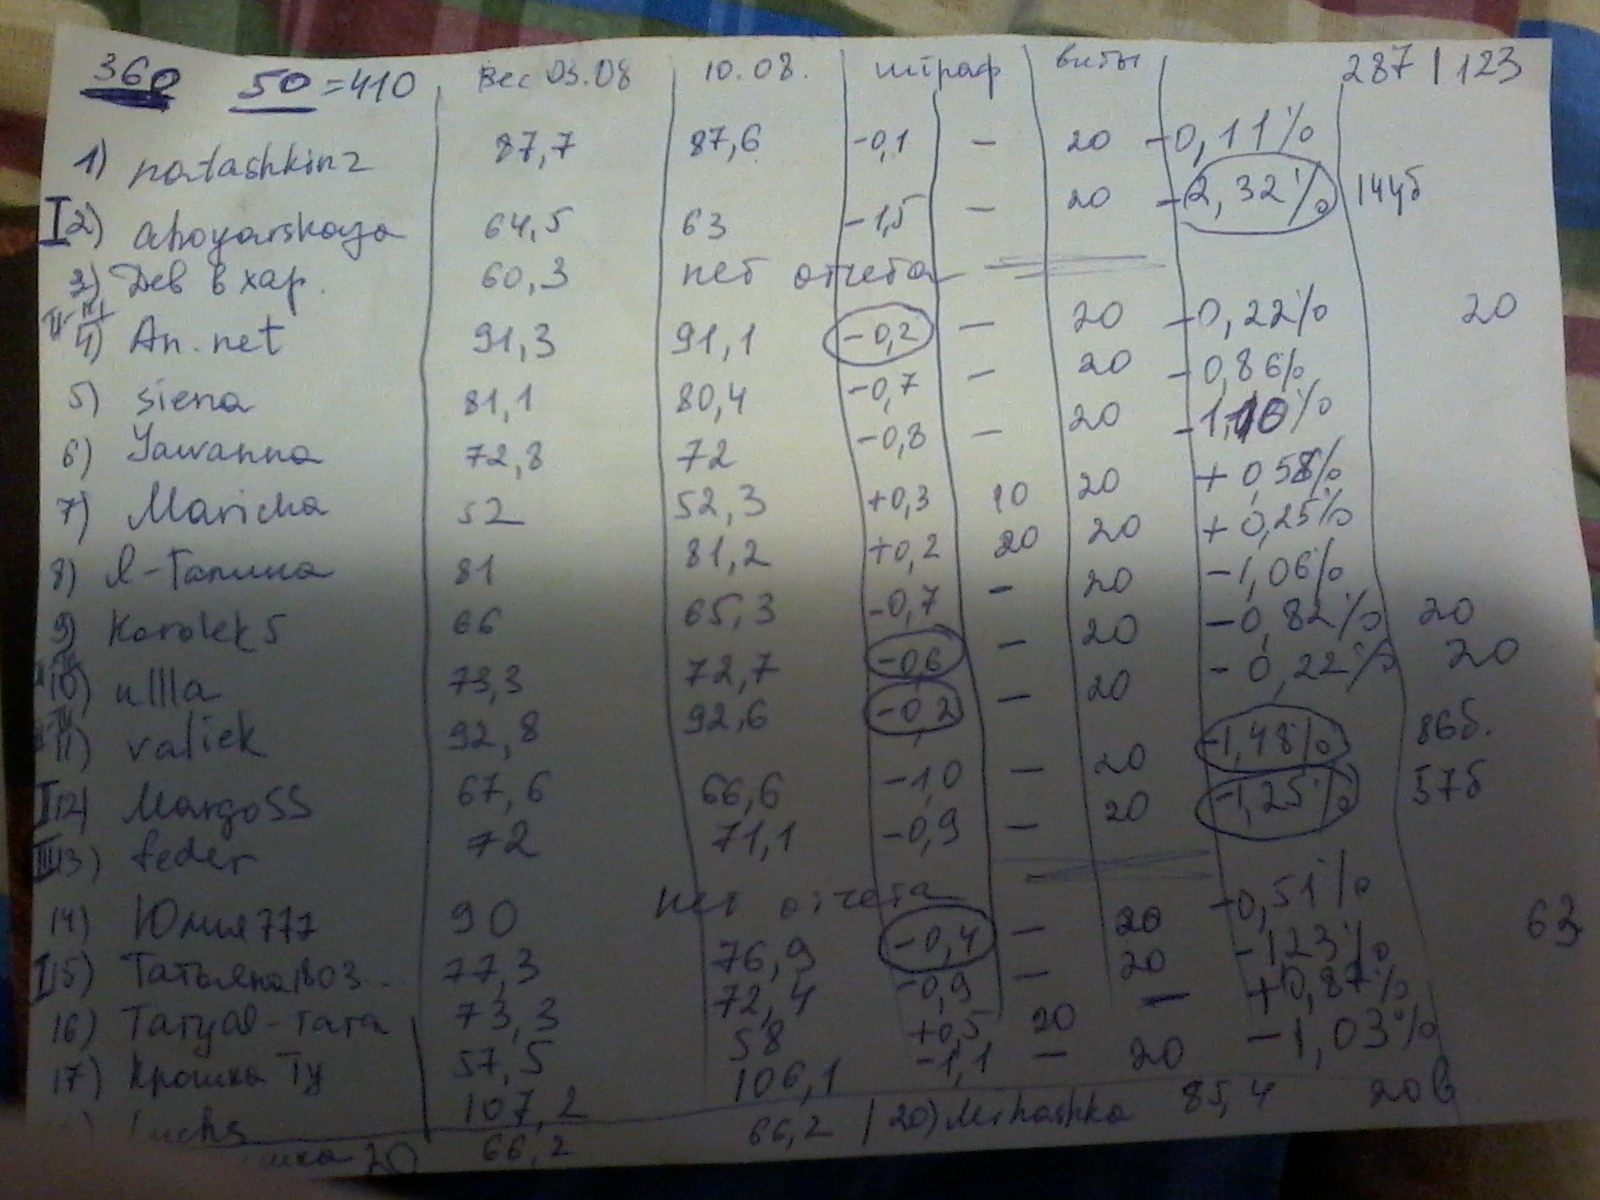 360 50 = 410 вес 03.08 10.08. штраф виты 287 | 123
1) natashkin2 87,7 87,6 -0,1 – 20 -0,11%
I 2) aboyarskaya 64,5 63 -1,5 – 20 -2,32% 144б
3) Дев в хар. 60,3 нет отчета
4) An.net 91,3 91,1 -0,2 – 20 -0,22% 20
5) siena 81,1 80,4 -0,7 – 20 -0,86%
6) Yawanna 72,8 72 -0,8 – 20 -1,10%
7) Maricha 52 52,3 +0,3 10 20 +0,58%
8) Я-Танина 81 81,2 +0,2 20 20 +0,25%
9) Karolek5 66 65,3 -0,7 – 20 -1,06%
10) ullla 73,3 72,7 -0,6 – 20 -0,82% 20
11) valiek 92,8 92,6 -0,2 – 20 -0,22% 20
12) MargoSS 67,6 66,6 -1,0 – 20 -1,48% 86б.
III 13) feder 72 71,1 -0,9 – 20 -1,25% 57б
14) Юлия777 90 нет отчета
15) Татьяна1803.. 77,3 76,9 -0,4 – 20 -0,51% 63
16) Tatyal-tata 73,3 72,4 -0,9 – 20 -1,23%
17) Крошка Ту 57,5 58 +0,5 20 – +0,87%
Luchs 107,2 106,1 -1,1 – 20 -1,03%
20 66,2 66,2 | 20) Mihashka 85,4 20в